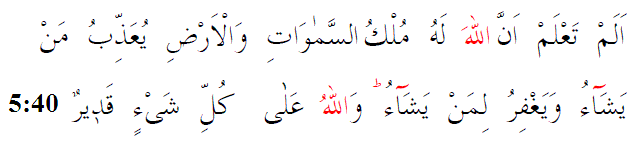 اَلَمْ تَعْلَمْ اَنَّ اللّٰهَ لَهُ مُلْكُ السَّمٰوَاتِ وَالْاَرْضِ يُعَذِّبُ مَنْ
يَشَٓاءُ وَيَغْفِرُ لِمَنْ يَشَٓاءُۜ وَاللّٰهُ عَلٰى كُلِّ شَيْءٍ قَد۪يرٌ 5:40